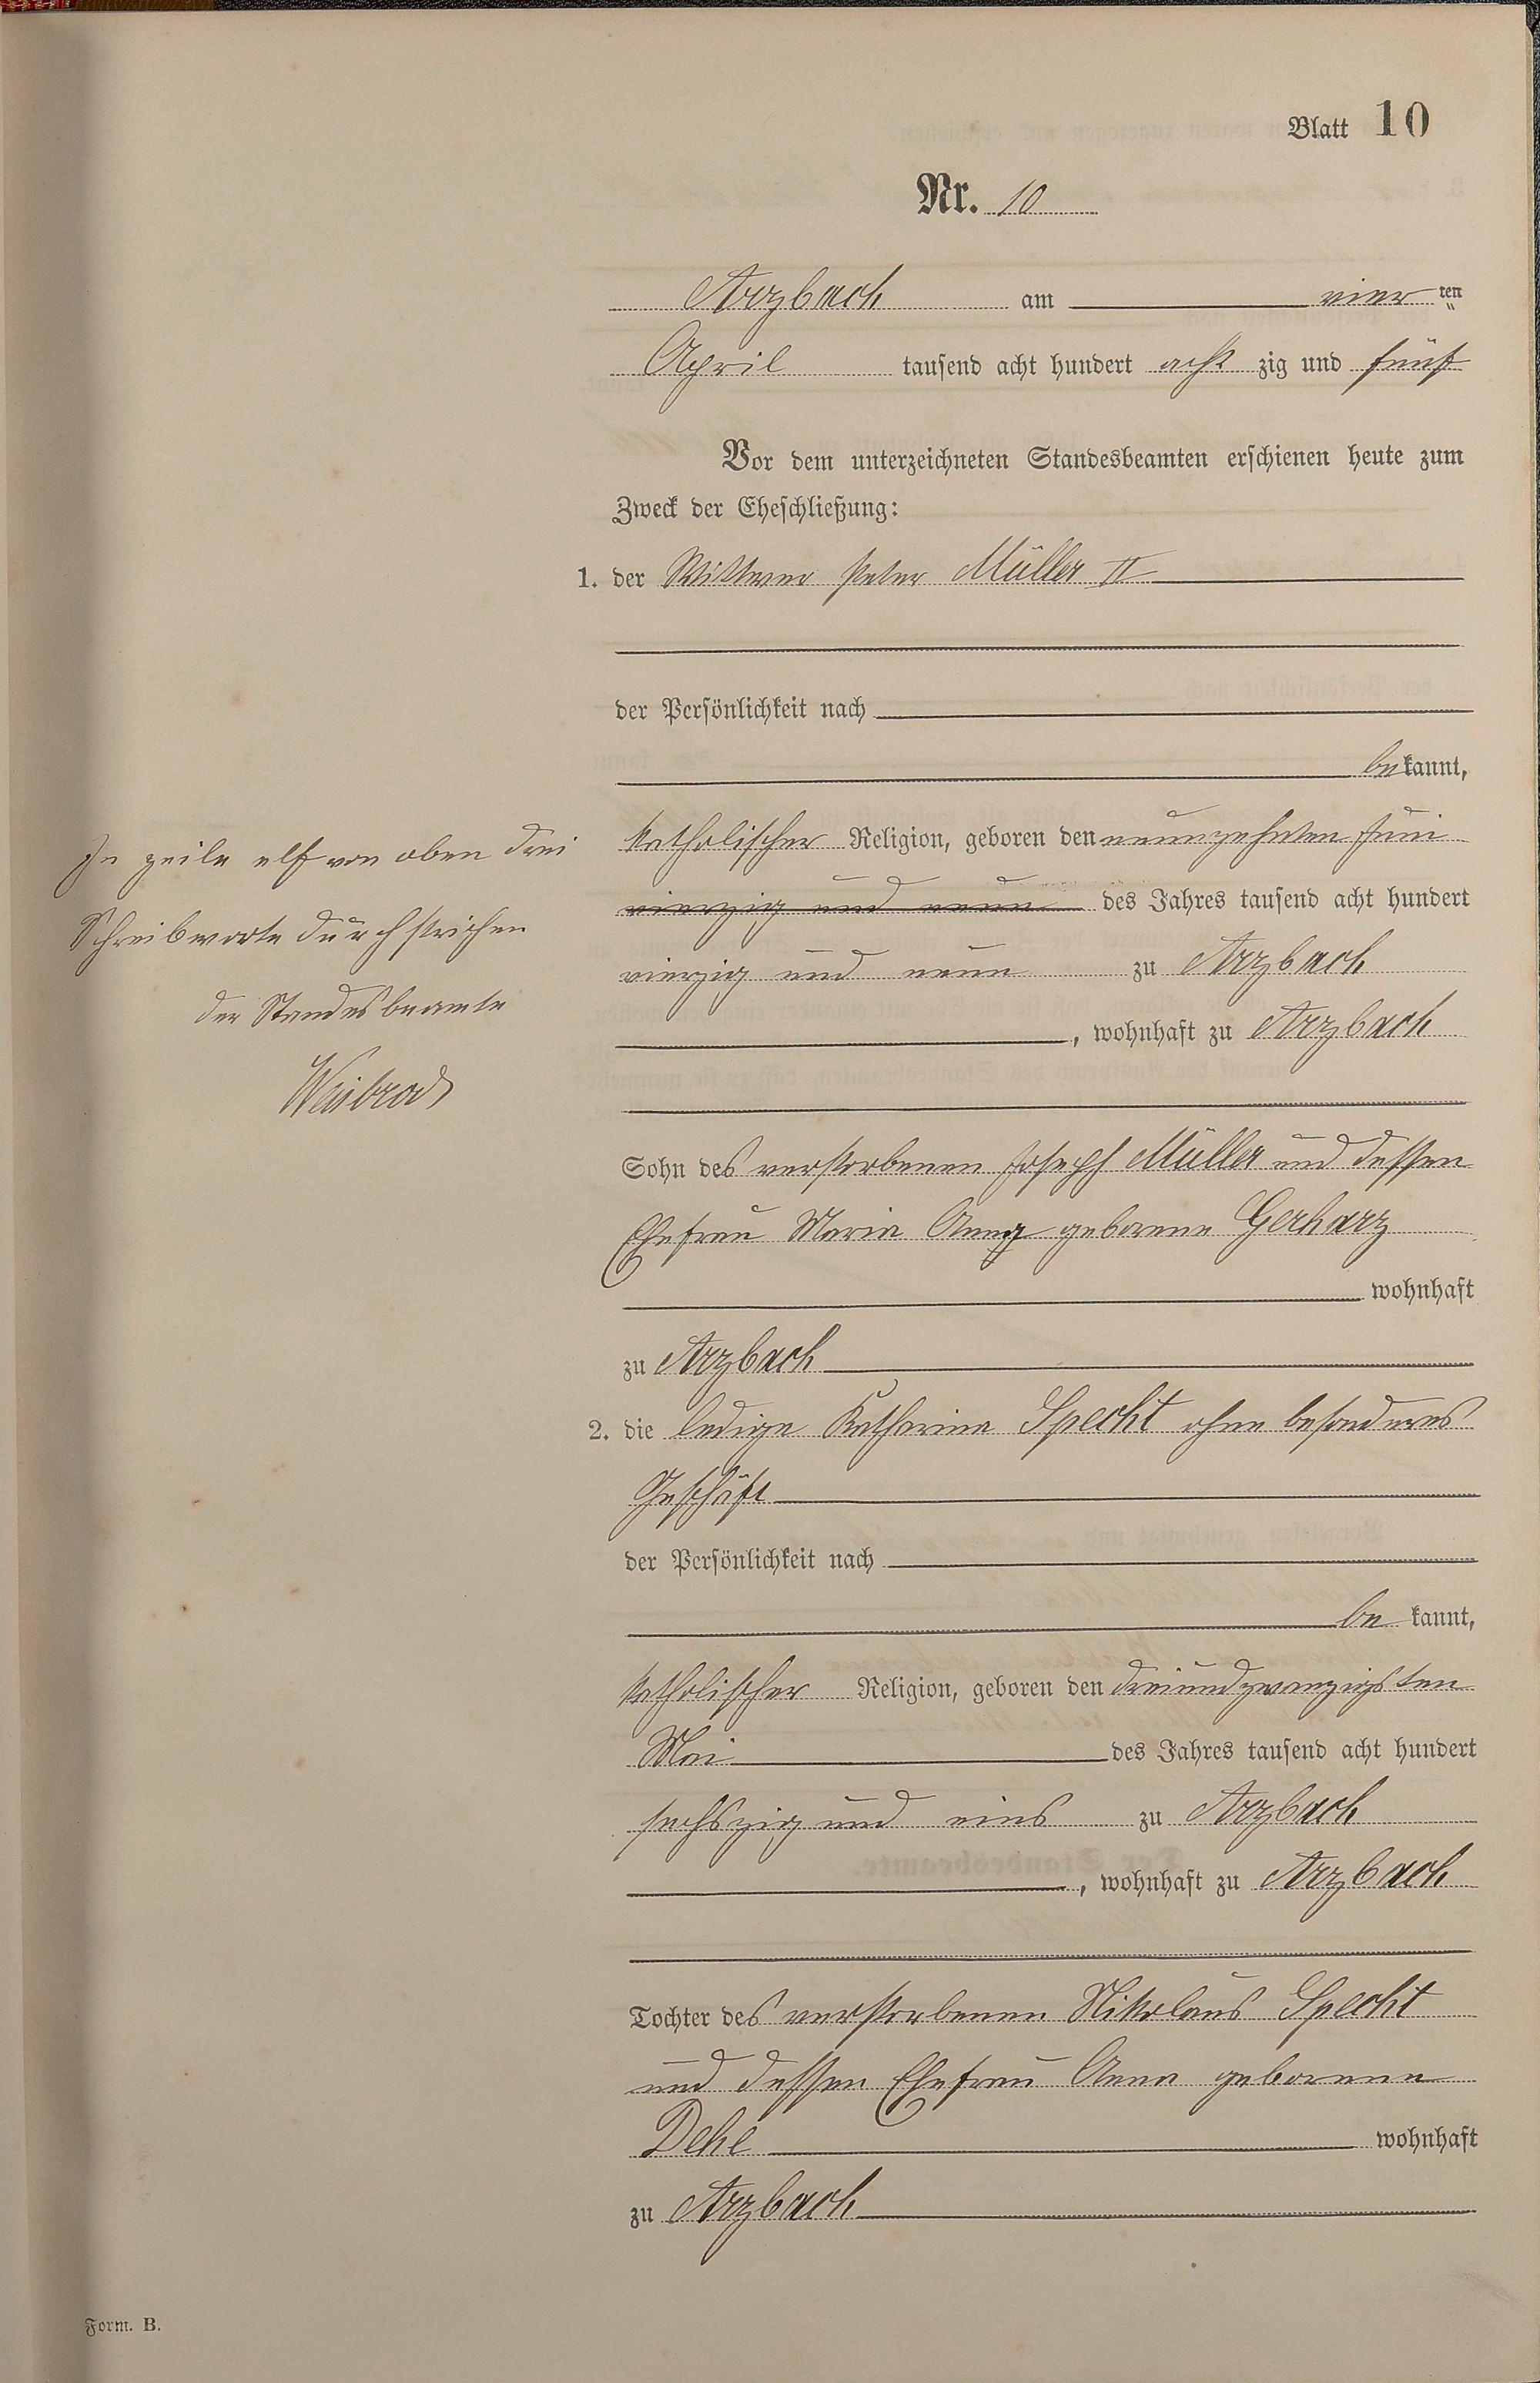 Blatt 10
Nr. 10
Arzbach am vier ten
April tausend acht hundert acht zig und fünf
Vor dem unterzeichneten Standesbeamten erschienen heute zum
Zweck der Eheschließung:
1. der Wittwer Peter Müller II
der Persönlichkeit nach
be kannt,
katholischer Religion, geboren den neunzehnten Juni
vierzig und neun des Jahres tausend acht hundert
vierzig und neun zu Arzbach
, wohnhaft zu Arzbach
Sohn des verstorbenen Joseph Müller und dessen
Ehefrau Maria Anna geborene Gerharz
wohnhaft
zu Arzbach
2. die ledige Katharina Specht ohne besonderes
Geschäft
der Persönlichkeit nach
be kannt,
katholischer Religion, geboren den dreiundzwanzigsten
Mai des Jahres tausend acht hundert
sechszig und eins zu Arzbach
, wohnhaft zu Arzbach
Tochter des verstorbenen Nikolaus Specht
und dessen Ehefrau Anna geborene
Dehé wohnhaft
zu Arzbach
In Zeile elf von oben drei
Schreibworte durchstrichen
der Standesbeamte
Weisbrod
Form. B.